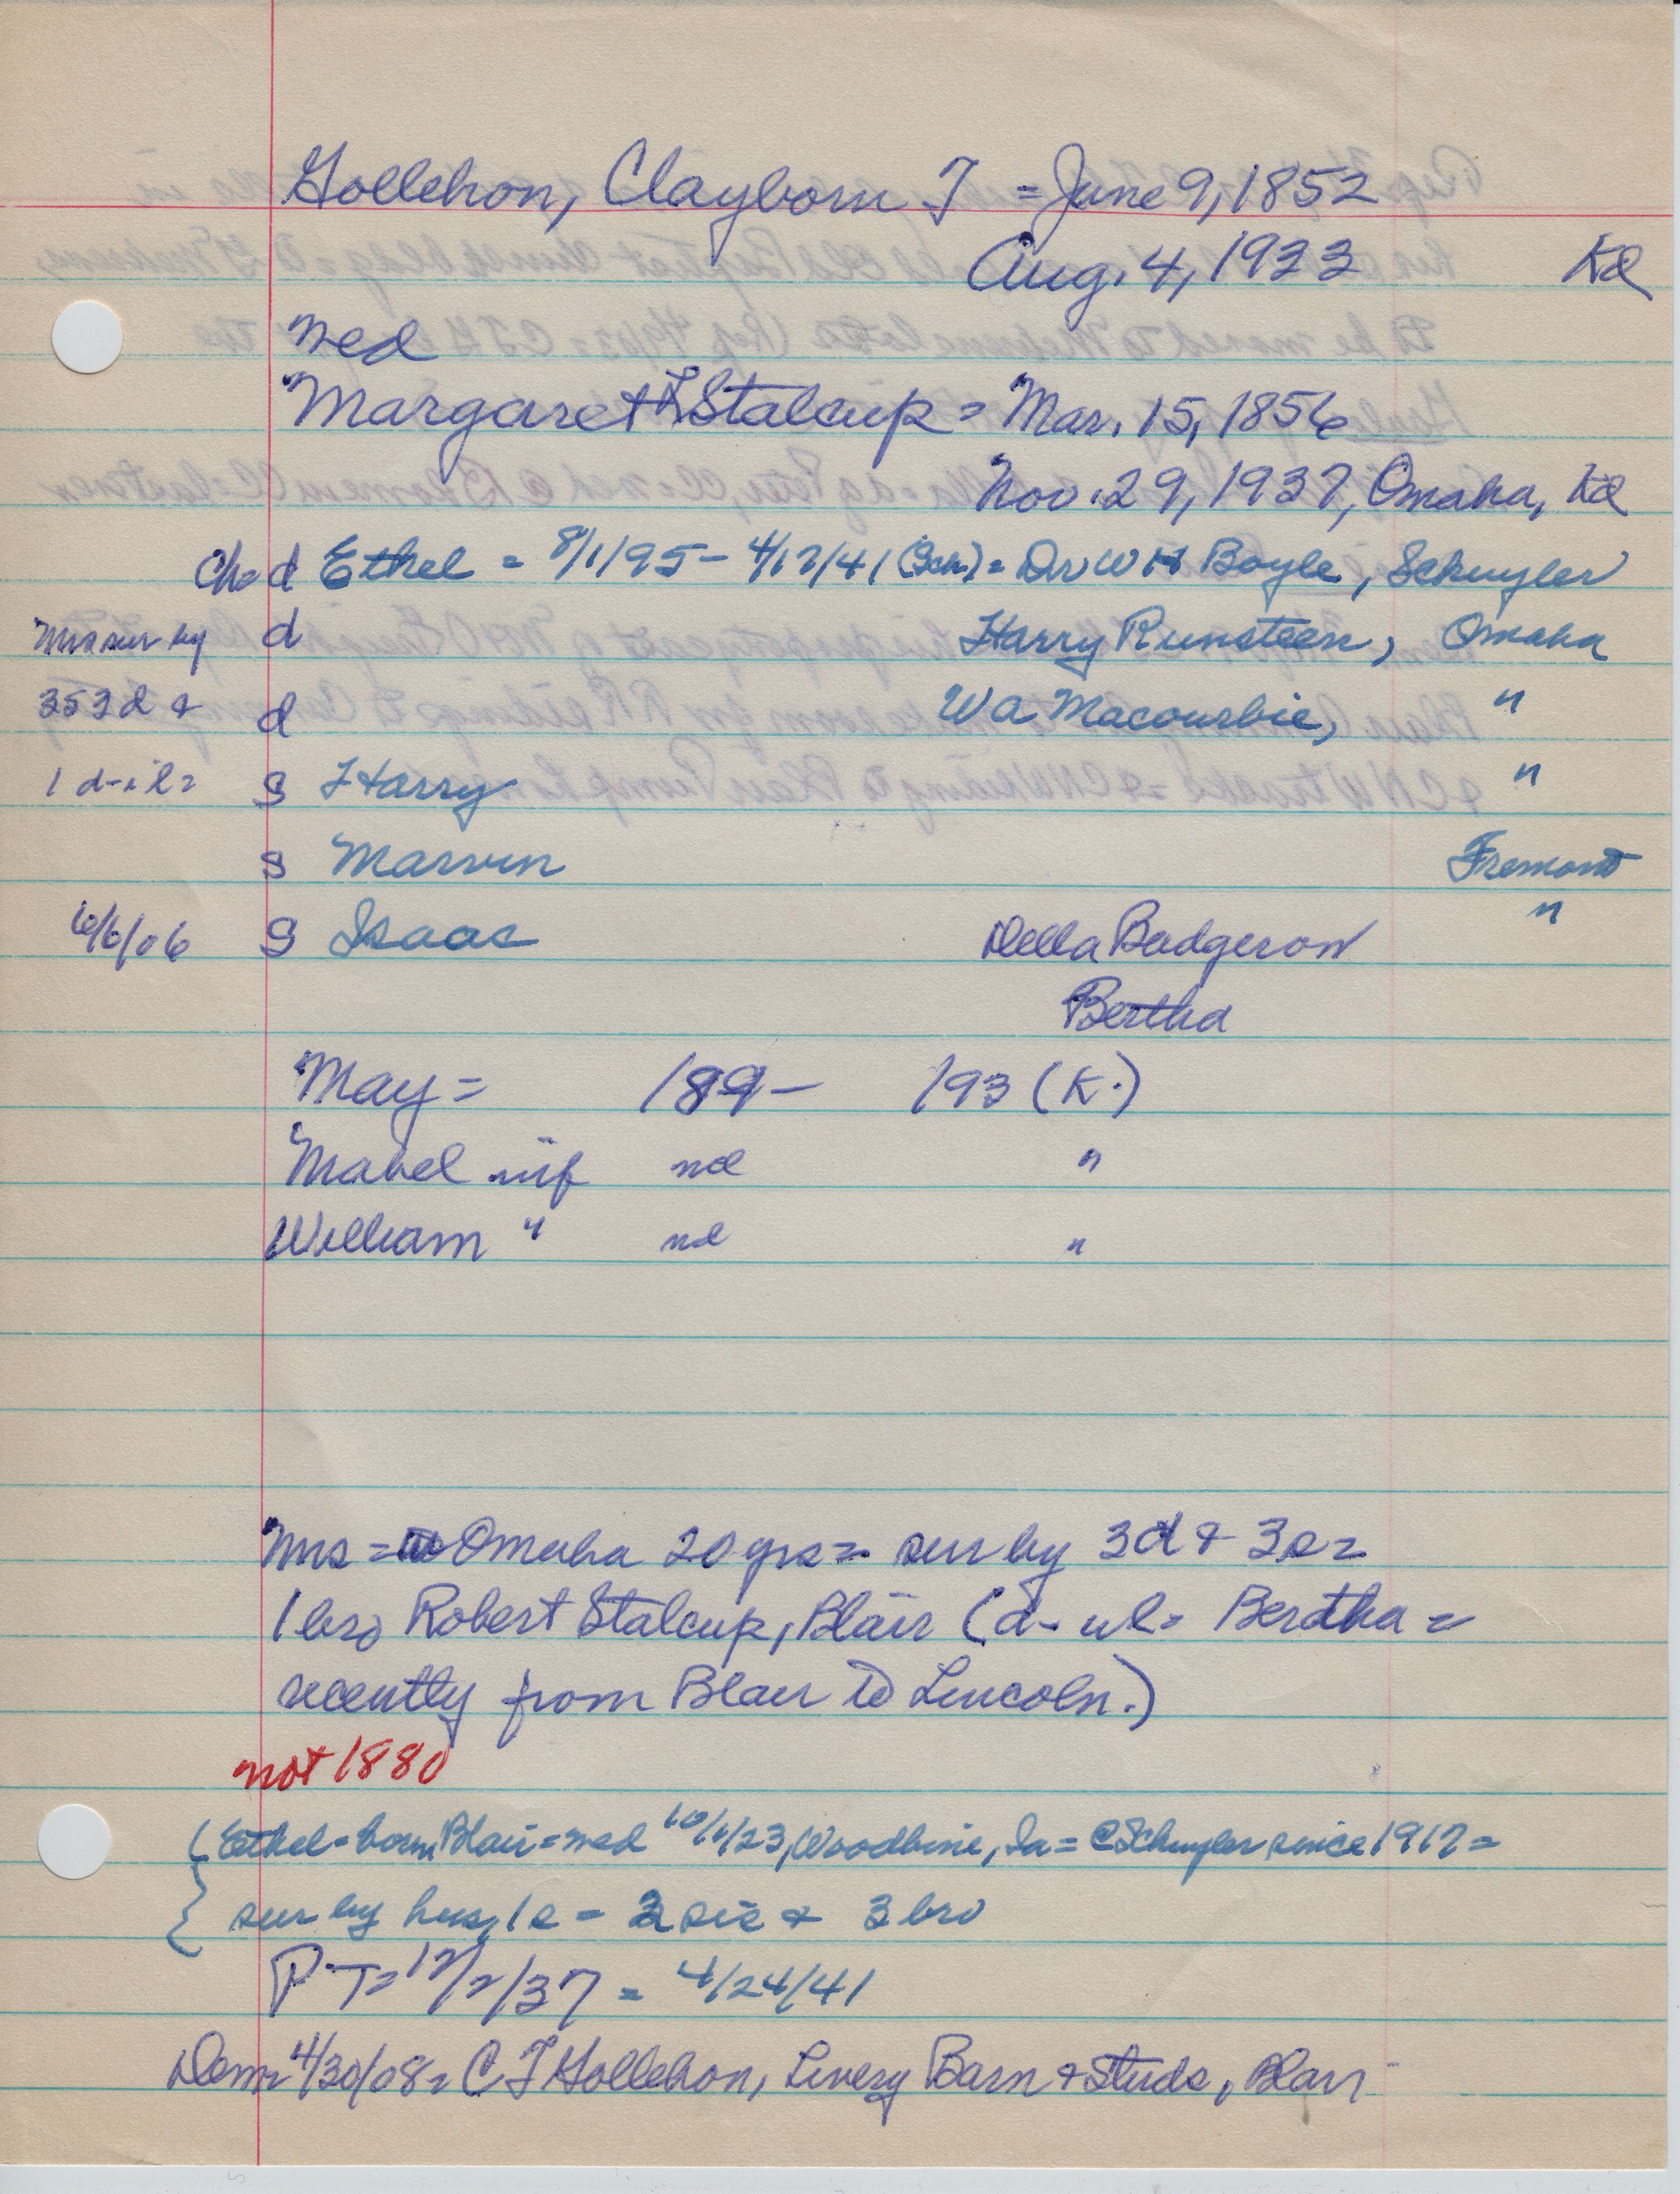 Gollehon, Clayborn T = June 9, 1852
Aug. 4, 1933 Kd
med
Margaret L Stalcup = Mar. 15, 1856
Nov. 29, 1937, Omaha, Kd
Ch= d Ethel = 8/1/95 - 4/17/41 (Sch) = Dr W H Boyle, Schuyler
Mrs sur by d Harry Runsteen, Omaha
3s 3d & d W A Macourbie, "
1 d-il= s Harry "
s Marvin Fremont
6/6/06 s Isaac Della Badgerow "
Bertha
May = 189- 193 (K.)
Mabel inf nd "
William " nd "
Mrs = Omaha 20 yrs = sur by 3d & 3s =
1 bro Robert Stalcup, Blair (d-il = Berdtha =
recently from Blair to Lincoln.)
not 1880
( Ethel = born Blair = med 10/1/23, Woodbine, Ia = @ Schuyler since 1917 =
{ sur by hus, 1 s = 2 sis & 3 bro
P-T = 12/2/37 = 4/24/41
Dem = 4/30/08 = C T Gollehon, Livery Barn & Studs, Blair